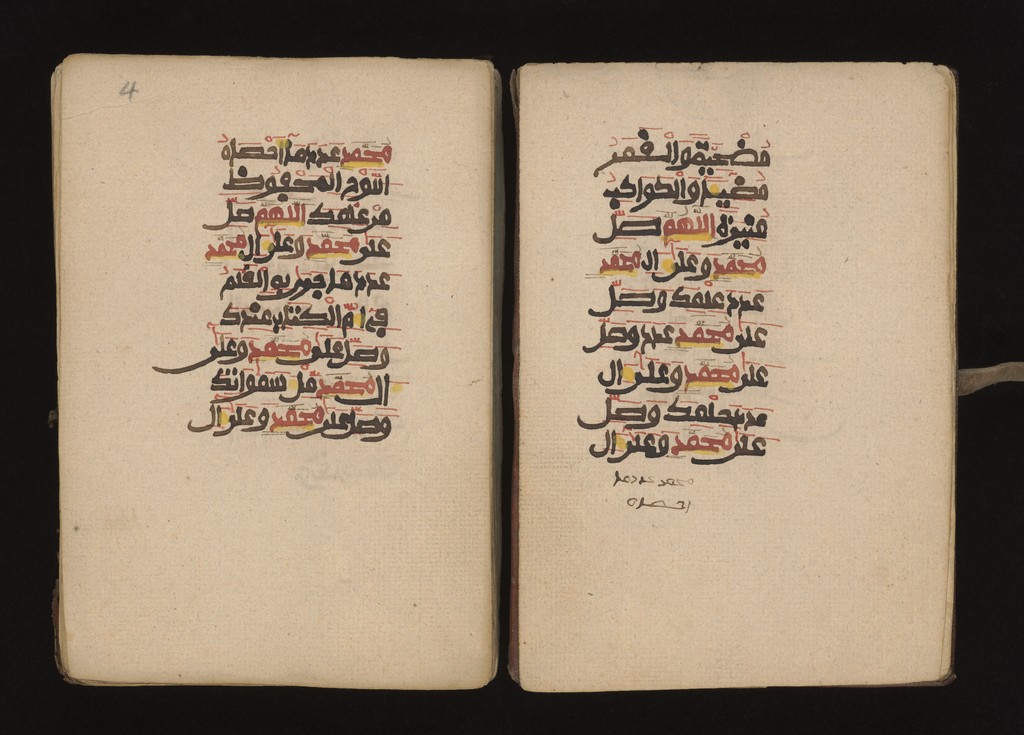 مضيئة والقمر
مضيئا والكواكب
منيرة اللهم صل
محمد وعلى ال محمد
عدد علمك وصل
على محمد عدد وصل
على محمد وعلى ال
عدد حلمك وصل
على محمد وعلى ال
محمد عدد ما
احصاه
4
محمد عدد ما احصاه
اللوح المحفوظ
من علمك اللهم صل
على محمد وعلى ال محمد
عدد ما جرى به القلم
في ام الكتاب عندك
وصل على محمد وعلى
ال محمد مل سمواتك
وصل على محمد وعلى ال